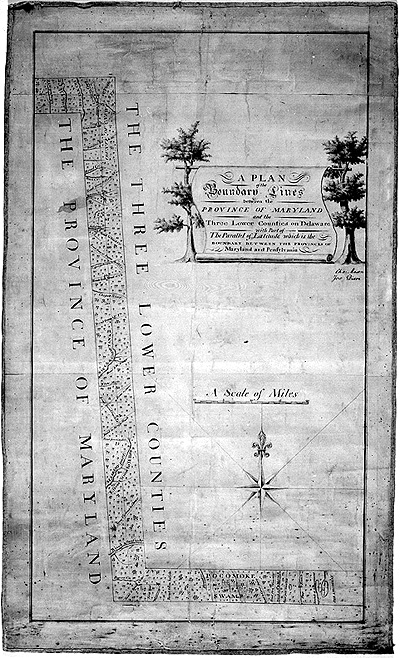 A PLAN
of the
Boundary Lines
between the
PROVINCE OF MARYLAND
and the
Three Lower Counties on Delaware
with Part of
The Parallel of Latitude which is the
BOUNDARY BETWEEN THE PROVINCES OF
Maryland and Pensylvania
Cha: Mason
Jere: Dixon
THE THREE LOWER COUNTIES
THE PROVINCE OF MARYLAND
A Scale of Miles
POCOMOKE